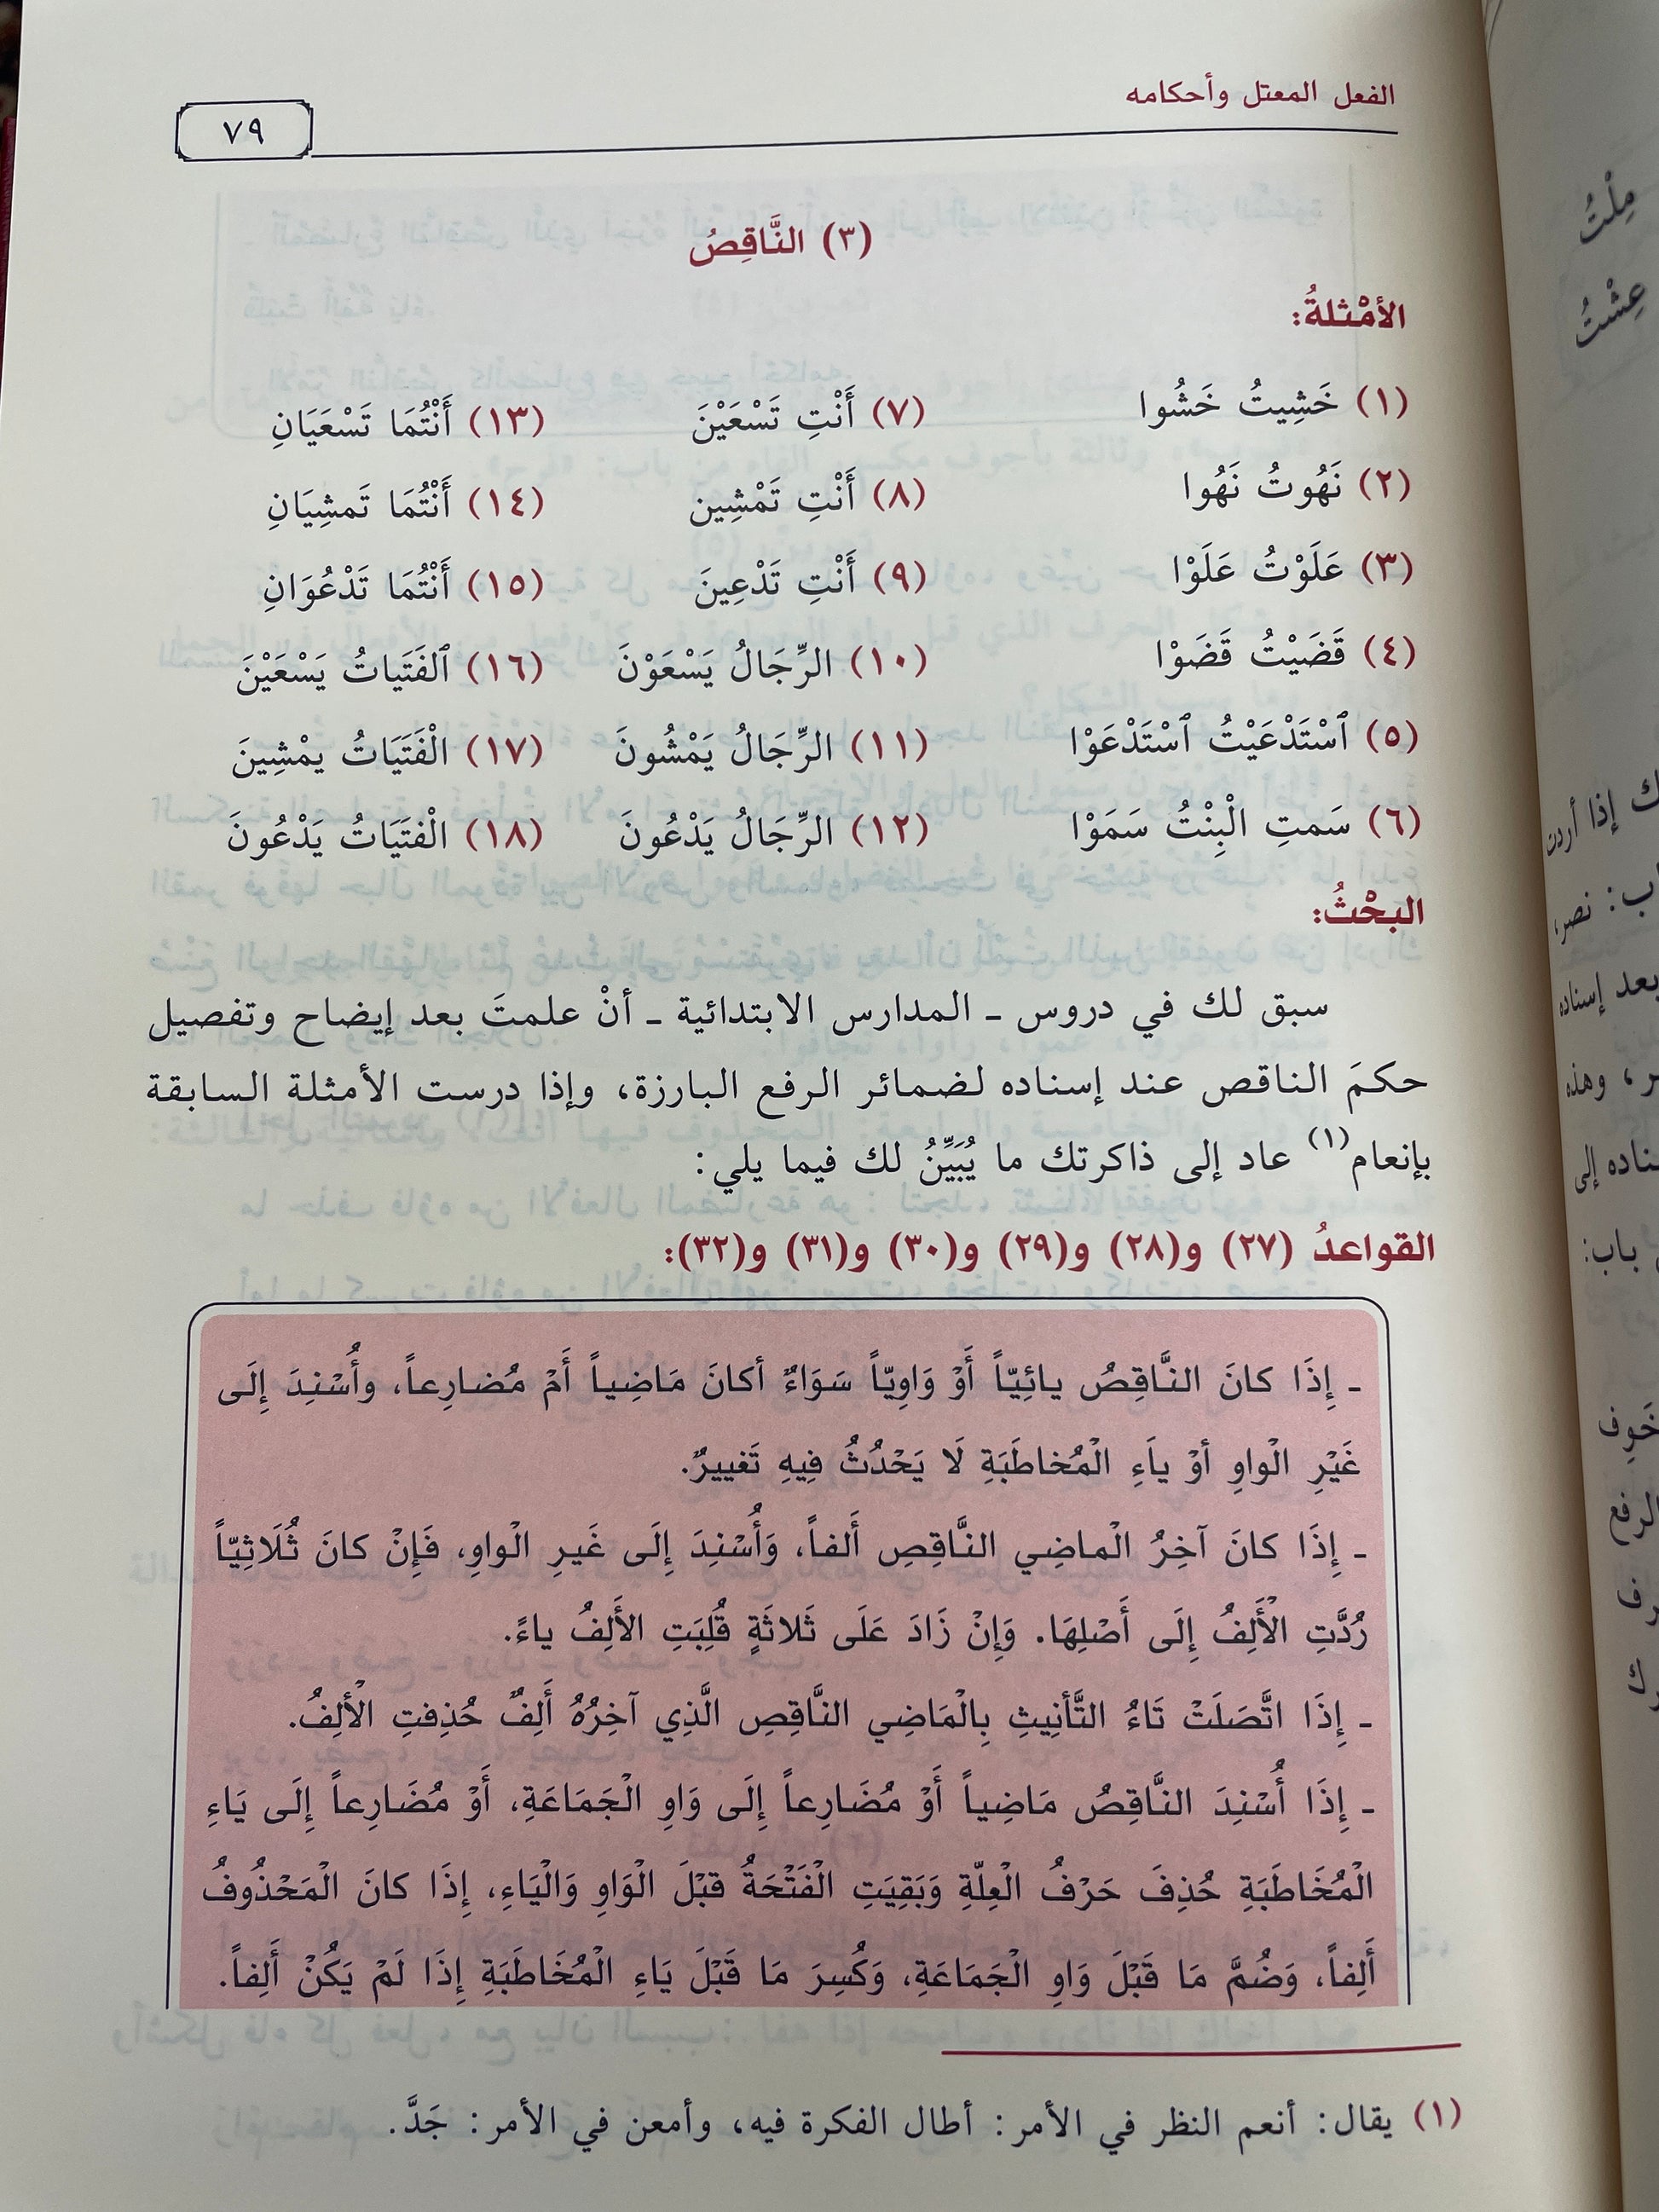 الفعل المعتل وأحكامه
٧٩
(٣) النَّاقِصُ
الأمْثلةُ:
(١) خَشِيتُ خَشُوا (٧) أَنْتِ تَسْعَيْنَ (١٣) أَنْتُمَا تَسْعَيَانِ
(٢) نَهُوتُ نَهُوا (٨) أَنْتِ تَمْشِين (١٤) أَنْتُمَا تَمشِيَانِ
(٣) عَلَوْتُ عَلَوْا (٩) أَنْتِ تَدْعِينَ (١٥) أَنْتُمَا تَدْعُوَانِ
(٤) قَضَيْتُ قَضَوْا (١٠) الرِّجَالُ يَسْعَوْنَ (١٦) ٱلفَتَيَاتُ يَسْعَيْنَ
(٥) ٱسْتَدْعَيْتُ ٱسْتَدْعَوْا (١١) الرِّجَالُ يَمْشُونَ (١٧) الْفَتَيَاتُ يمْشِينَ
(٦) سَمتِ الْبِنْتُ سَمَوْا (١٢) الرِّجَالُ يَدْعُونَ (١٨) الْفتَيَاتُ يَدْعُونَ
البحْثُ:
سبق لك في دروس ـ المدارس الابتدائية ـ أنْ علمتَ بعد إيضاح وتفصيل
حكمَ الناقص عند إسناده لضمائر الرفع البارزة، وإذا درست الأمثلة السابقة
بإنعام(١) عاد إلى ذاكرتك ما يُبَيِّنُ لك فيما يلي:
القواعدُ (٢٧) و(٢٨) و(٢٩) و(٣٠) و(٣١) و(٣٢):
ـ إِذَا كانَ النَّاقِصُ يائِيّاً أَوْ وَاوِيّاً سَوَاءٌ أكانَ مَاضِياً أَمْ مُضارِعاً، وأُسْنِدَ إِلَى
غَيْرِ الْواوِ أوْ ياَءِ الْمُخاطَبَةِ لَا يَحْدُثُ فِيهِ تَغييرٌ.
ـ إِذَا كانَ آخِرُ الْماضِي النَّاقِصِ أَلفاً، وَأُسْنِدَ إِلَى غَيرِ الْواوِ، فَإِنْ كانَ ثُلَاثِيّاً
رُدَّتِ الْأَلِفُ إِلَى أَصْلِهَا. وَإِنْ زَادَ عَلَى ثَلاثَةٍ قُلِبَتِ الأَلِفُ ياءً.
ـ إِذَا اتَّصَلَتْ تَاءُ التَّأنِيثِ بِالْمَاضِي النَّاقِصِ الَّذِي آخِرُهُ أَلِفٌ حُذِفتِ الْألِفُ.
ـ إِذَا أُسْنِدَ النَّاقِصُ مَاضِياً أَوْ مُضَارِعاً إِلَى وَاوِ الْجَمَاعَةِ، أَوْ مُضَارِعاً إِلَى يَاءِ
الْمُخَاطَبَةِ حُذِفَ حَرْفُ الْعِلّةِ وَبَقِيَتِ الْفَتْحَةُ قبْلَ الْوَاوِ وَالْيَاءِ، إِذَا كانَ الْمَحْذُوفُ
أَلِفاً، وَضُمَّ مَا قَبْلَ وَاوِ الْجَمَاعَةِ، وَكُسِرَ مَا قَبْلَ يَاءِ الْمُخَاطَبَةِ إِذَا لَمْ يَكُنْ أَلِفاً.
(١) يقال: أنعم النظر في الأمر: أطال الفكرة فيه، وأمعن في الأمر: جَدَّ.
مِلْتُ
عِشْتُ
ك إذا أردت
اب: نصر،
بعد إسناده
ر، وهذه
ناده إلى
باب:
خَوِف
لرفع
رف
رك